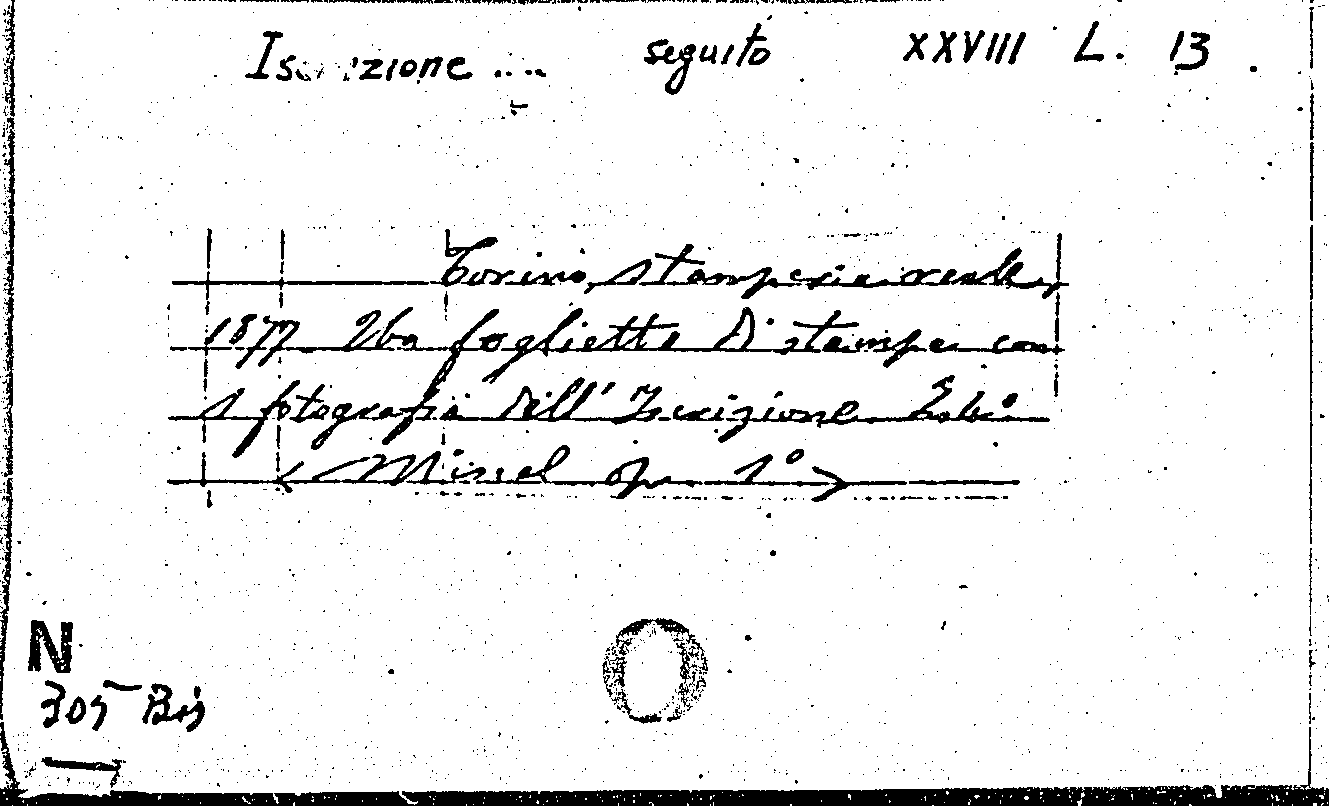 Iscrizione .... seguito XXVIII L. 13.
Torino, stamperia reale,
1877 Un foglietto di stampa con
1 fotografia dell'Iscrizione
(Miscel op. 1°)
N
305 Bis